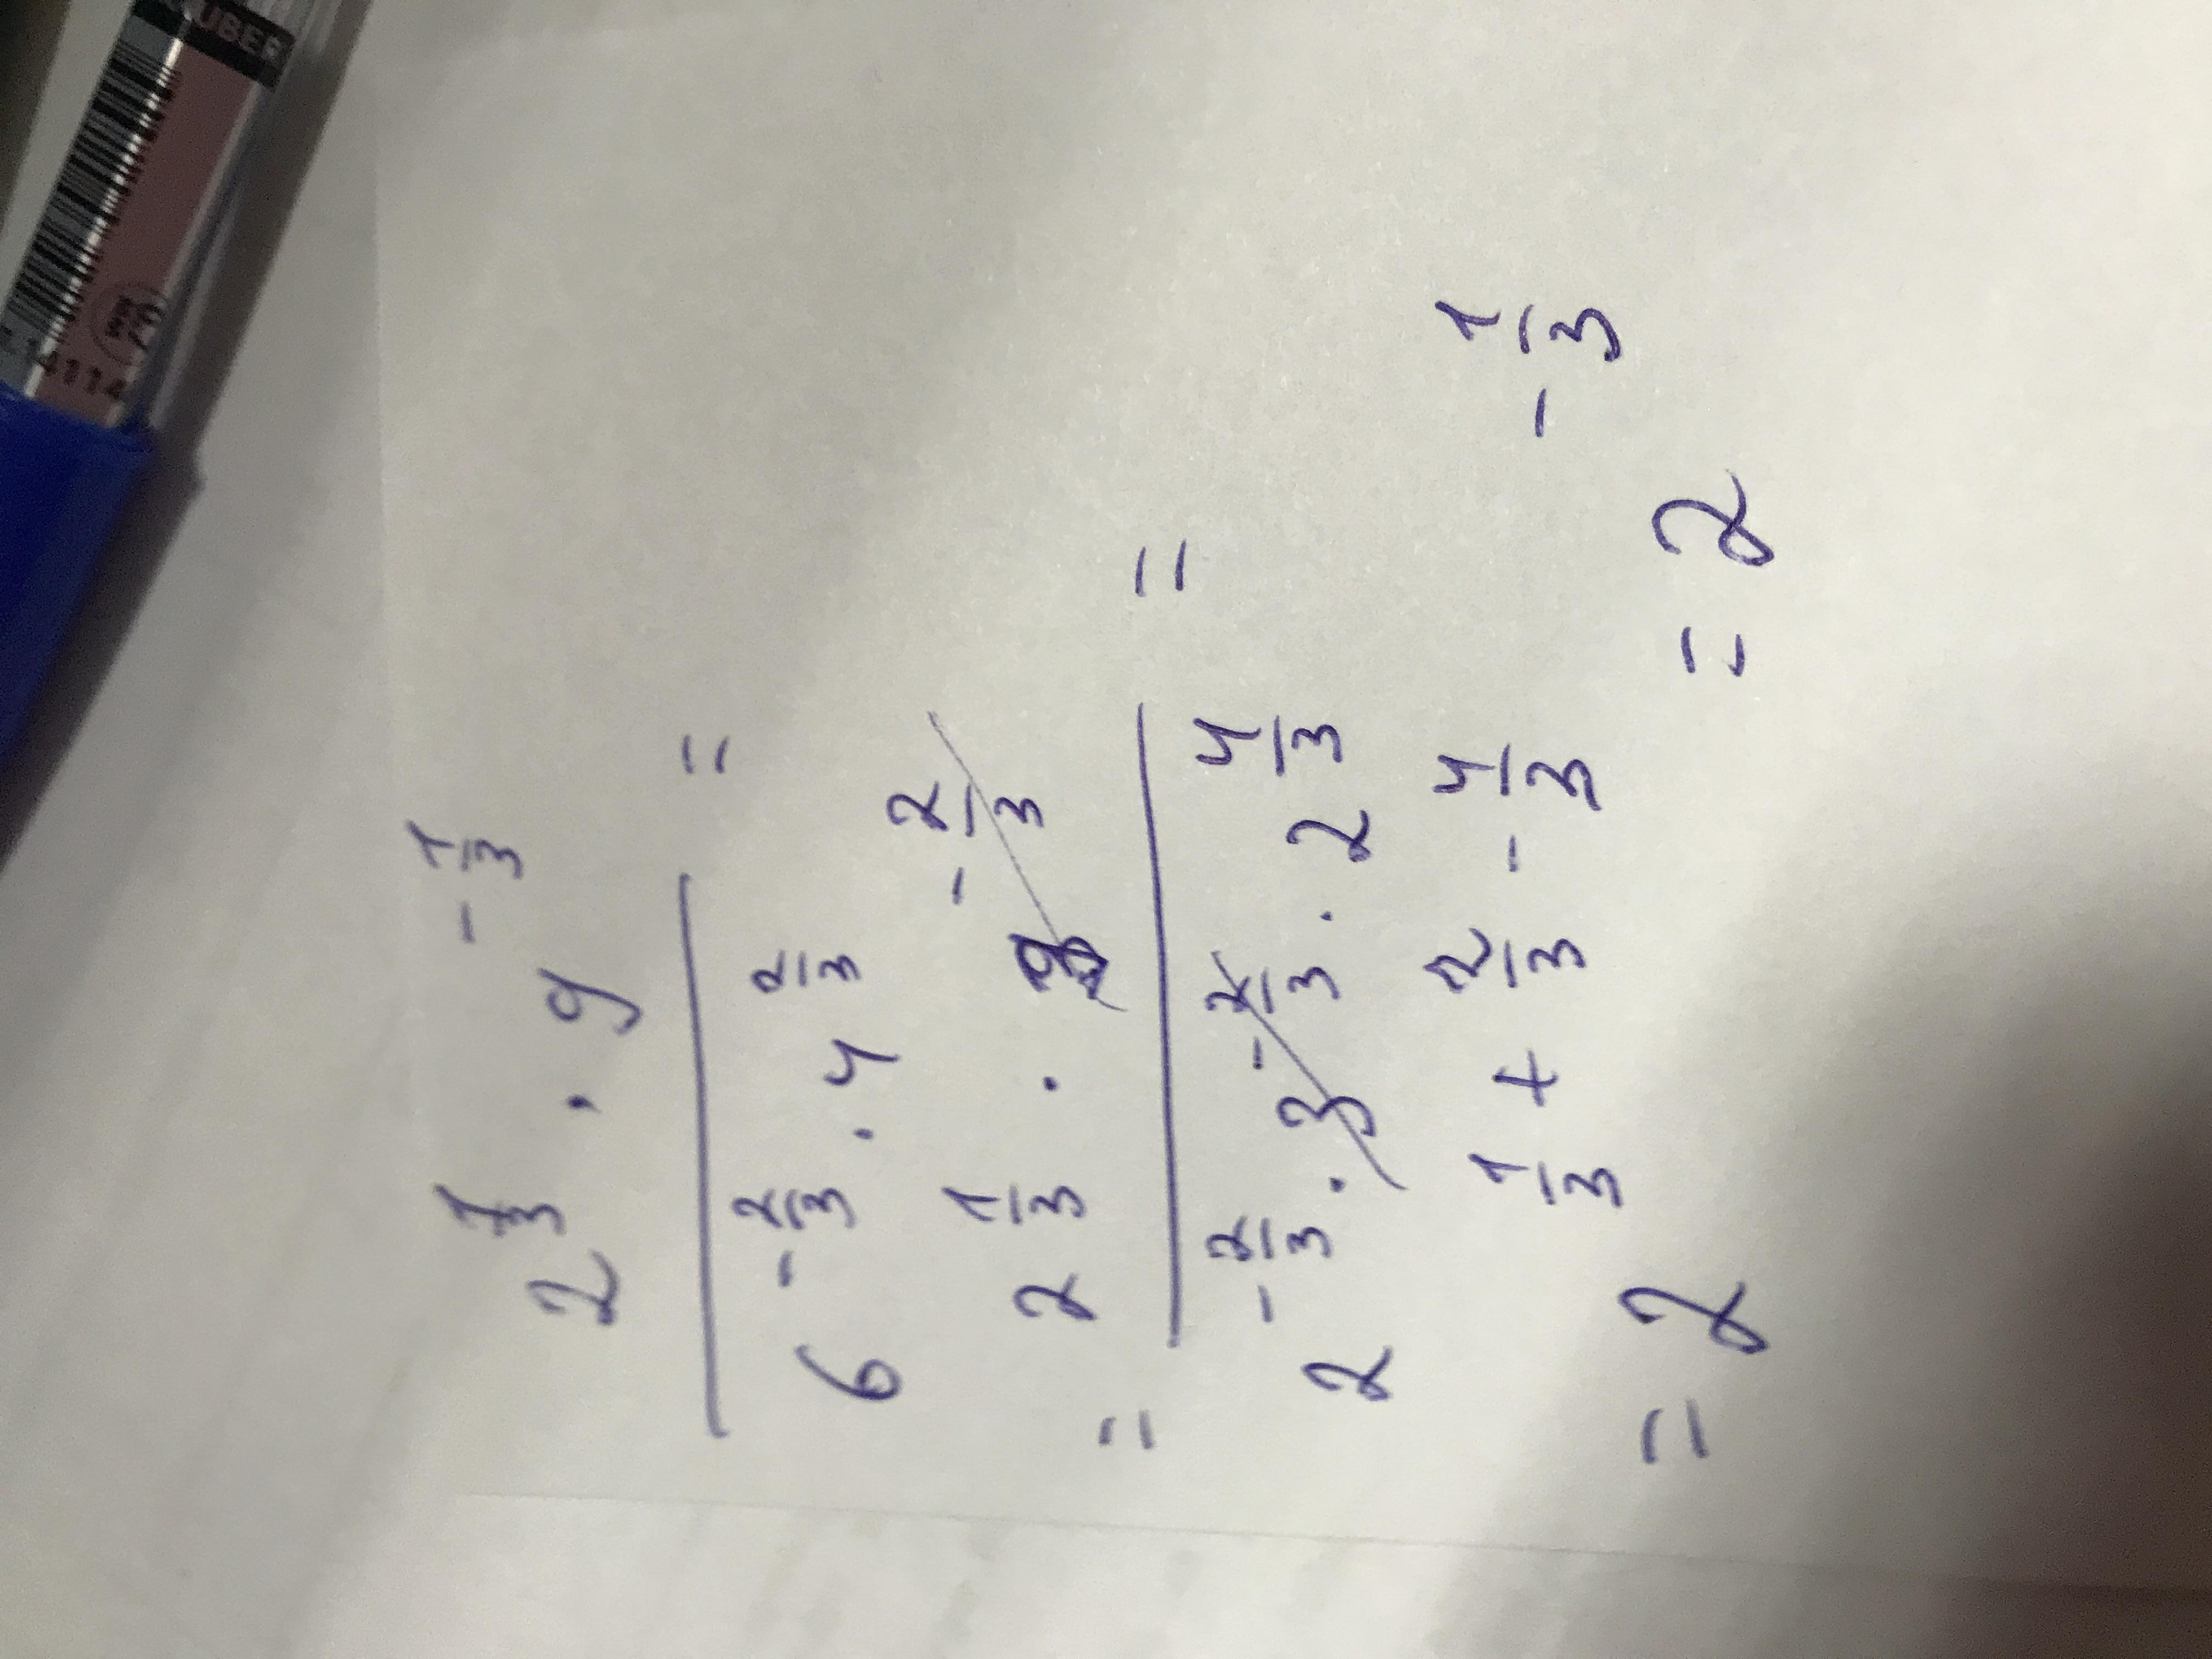 2^{1/3} · 9^{-1/3}
6^{-2/3} · 4^{2/3} =
= 2^{1/3} · 3^{-2/3}
2^{-2/3} · 3^{-2/3} · 2^{4/3} =
= 2^{1/3 + 2/3 - 4/3} = 2^{-1/3}
UBER